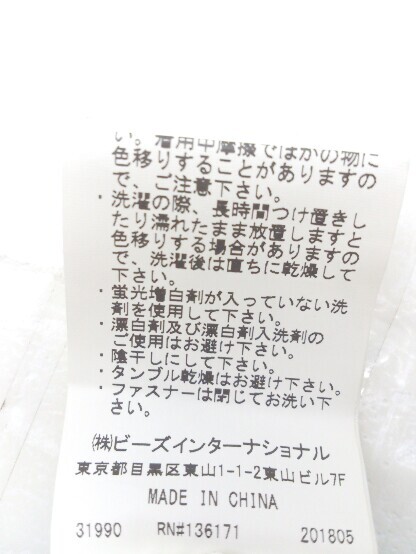 い。着用中摩擦でほかの物に
色移りすることがありますの
で、ご注意下さい。
・洗濯の際、長時間つけ置きし
たり濡れたまま放置しますと
色移りする場合がありますの
で、洗濯後は直ちに乾燥して
下さい。
・蛍光増白剤が入っていない洗
剤を使用して下さい。
・漂白剤及び漂白剤入洗剤の
ご使用はお避け下さい。
・陰干しにして下さい。
・タンブル乾燥はお避け下さい。
・ファスナーは閉じてお洗い下
さい。
㈱ビーズインターナショナル
東京都目黒区東山1-1-2東山ビル7F
MADE IN CHINA
31990 RN#136171 201805